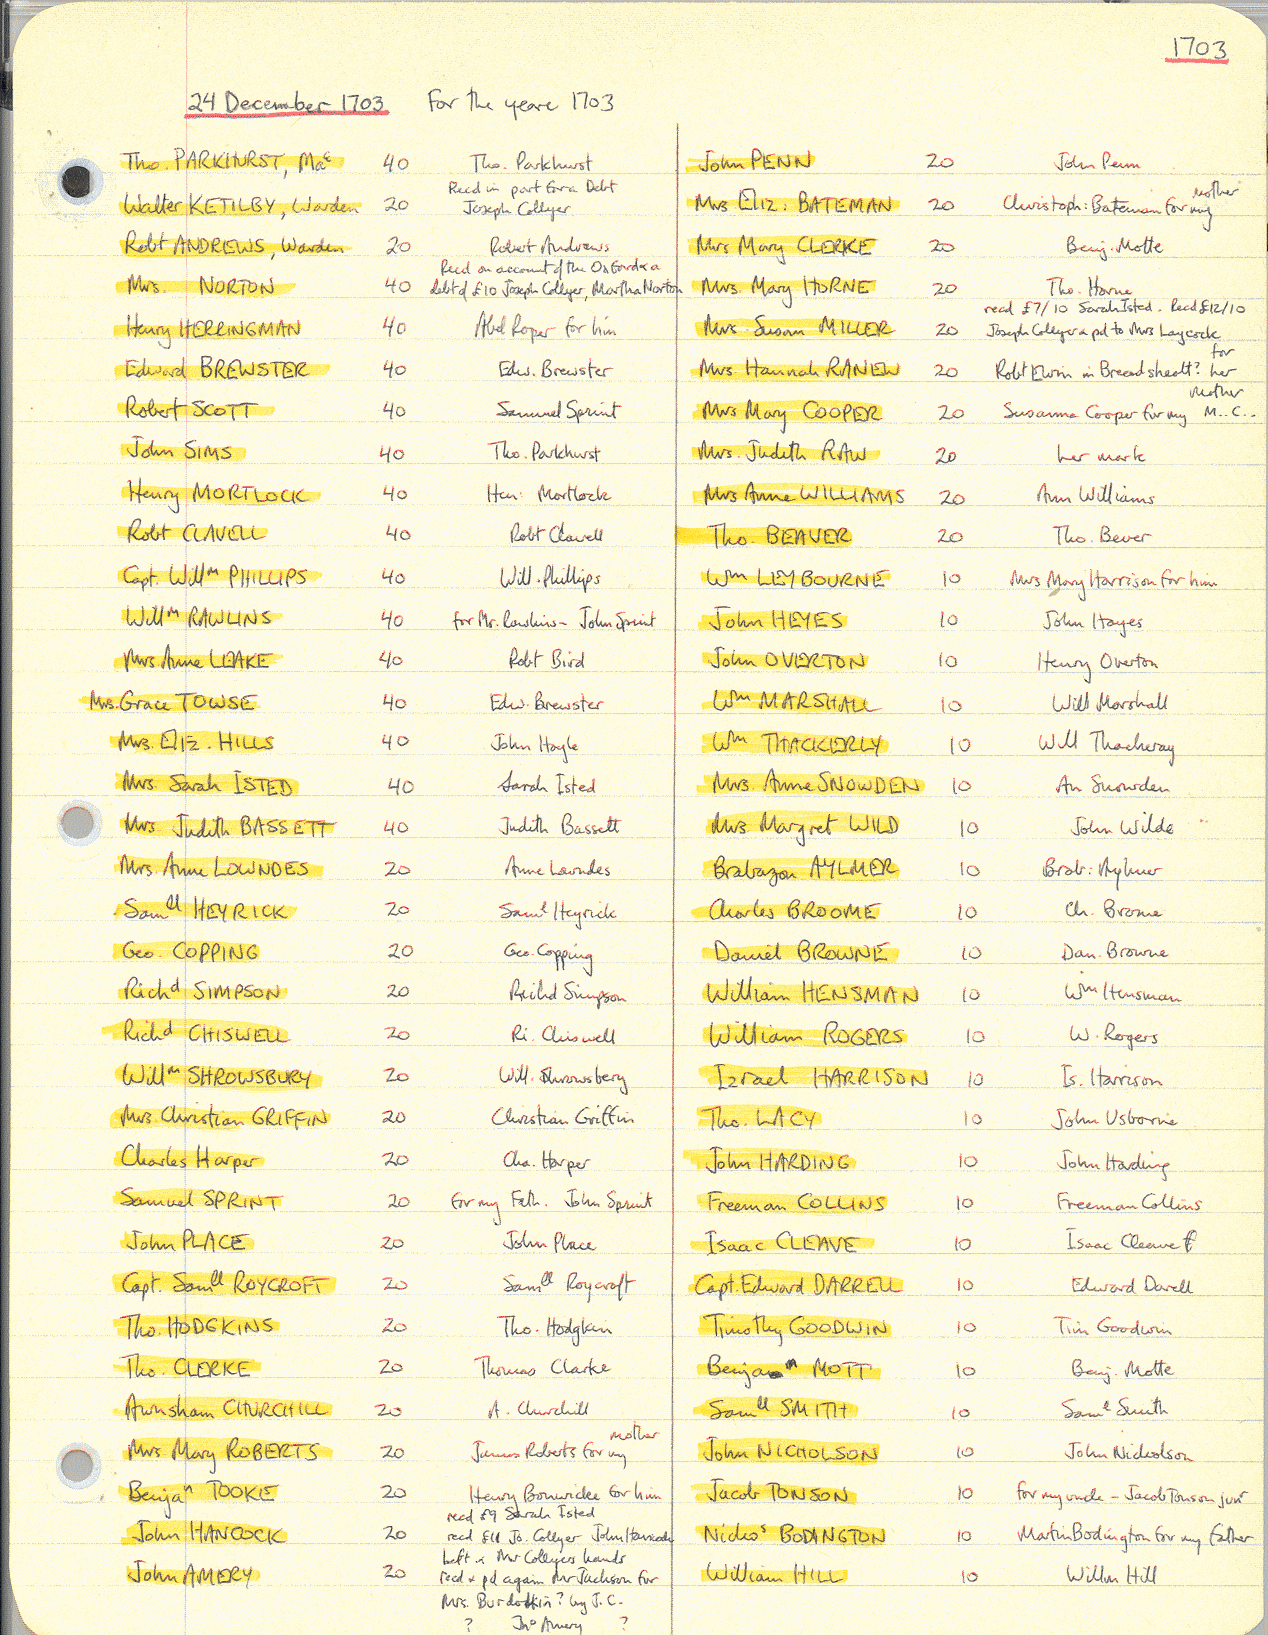 1703
24 December 1703 For the yeare 1703
Tho. PARKHURST, Mar 40 Tho. Parkhurst
Recd in part for a Debt
Walter KETILBY, Warden 20 Joseph Collyer
Robt ANDREWS, Warden 20 Robert Andrews
Recd on account of the Oxford & a
Mrs. NORTON 40 debt of £10 Joseph Collyer, Martha Norton
Henry HERRINGMAN 40 Abel Roper for him
Edward BREWSTER 40 Edw. Brewster
Robert SCOTT 40 Samuel Sprint
John SIMS 40 Tho. Parkhurst
Henry MORTLOCK 40 Hen: Mortlock
Robt CLAVELL 40 Robt Clavell
Capt. Willm PHILLIPS 40 Will. Phillips
Willm RAWLINS 40 for Mr. Rawlins - John Sprint
Mrs Anne LEAKE 40 Robt Bird
Mrs. Grace TOWSE 40 Edw. Brewster
Mrs. Eliz. HILLS 40 John Hoyle
Mrs. Sarah ISTED 40 Sarah Isted
Mrs Judith BASSETT 40 Judith Bassett
Mrs. Anne LOWNDES 20 Anne Lowndes
Samll HEYRICK 20 Saml Heyrick
Geo. COPPING 20 Geo. Copping
Richd SIMPSON 20 Richd Simpson
Richd CHISWELL 20 Ri. Chiswell
Willm SHROWSBURY 20 Will. Shrowsbery
Mrs. Christian GRIFFIN 20 Christian Griffin
Charles Harper 20 Cha. Harper
Samuel SPRINT 20 for my Fath. John Sprint
John PLACE 20 John Place
Capt. Samll ROYCROFT 20 Samll Roycroft
Tho. HODGKINS 20 Tho. Hodgkin
Tho. CLERKE 20 Thomas Clarke
Awnsham CHURCHILL 20 A. Churchill
mother
Mrs Mary ROBERTS 20 James Roberts for my
Benjan TOOKE 20 Henry Bonwicke for him
recd £9 Sarah Isted
John HANCOCK 20 recd £11 Jo. Collyer John Hancock
left in Mr Collyers hands
John AMERY 20 recd & pd again Mr Jackson for
Mrs. Burdokin? by J. C.
? Jno Amery ?
John PENN 20 John Penn
mother
Mrs Eliz: BATEMAN 20 Christoph: Bateman for my
Mrs Mary CLERKE 20 Benj. Motte
Mrs. Mary HORNE 20 Tho. Horne
recd £7/10 Sarah Isted. Recd £12/10
Mrs. Susan MILLER 20 Joseph Collyer & pd to Mrs Laycock
for
Mrs. Hannah RANEW 20 Robt Elwin in Breadsheatt? her
mother
Mrs Mary COOPER 20 Susanna Cooper for my M.. C..
Mrs. Judith RAW 20 her mark
Mrs Anne WILLIAMS 20 Ann Williams
Tho. BEAVER 20 Tho. Bever
Wm LEYBOURNE 10 Mrs Mary Harrison for him
John HEYES 10 John Hayes
John OVERTON 10 Henry Overton
Wm MARSHALL 10 Will Marshall
Wm THACKERLY 10 Will Thackeray
Mrs. Anne SNOWDEN 10 An Snowden
Mrs Margret WILD 10 John Wilde
Brabazon AYLMER 10 Brab: Aylmer
Charles BROOME 10 Ch. Brome
Daniel BROWNE 10 Dan. Browne
William HENSMAN 10 Wm Hensman
William ROGERS 10 W. Rogers
Izrael HARRISON 10 Is. Harrison
Tho. LACY 10 John Usborne
John HARDING 10 John Harding
Freeman COLLINS 10 Freeman Collins
Isaac CLEAVE 10 Isaac Cleave
Capt. Edward DARRELL 10 Edward Darell
Timothy GOODWIN 10 Tim Goodwin
Benjan MOTT 10 Benj. Motte
Samll SMITH 10 Saml Smith
John NICHOLSON 10 John Nicholson
Jacob TONSON 10 for my uncle - Jacob Tonson junr
Nichos BODINGTON 10 Martin Bodington for my father
William HILL 10 Willm Hill